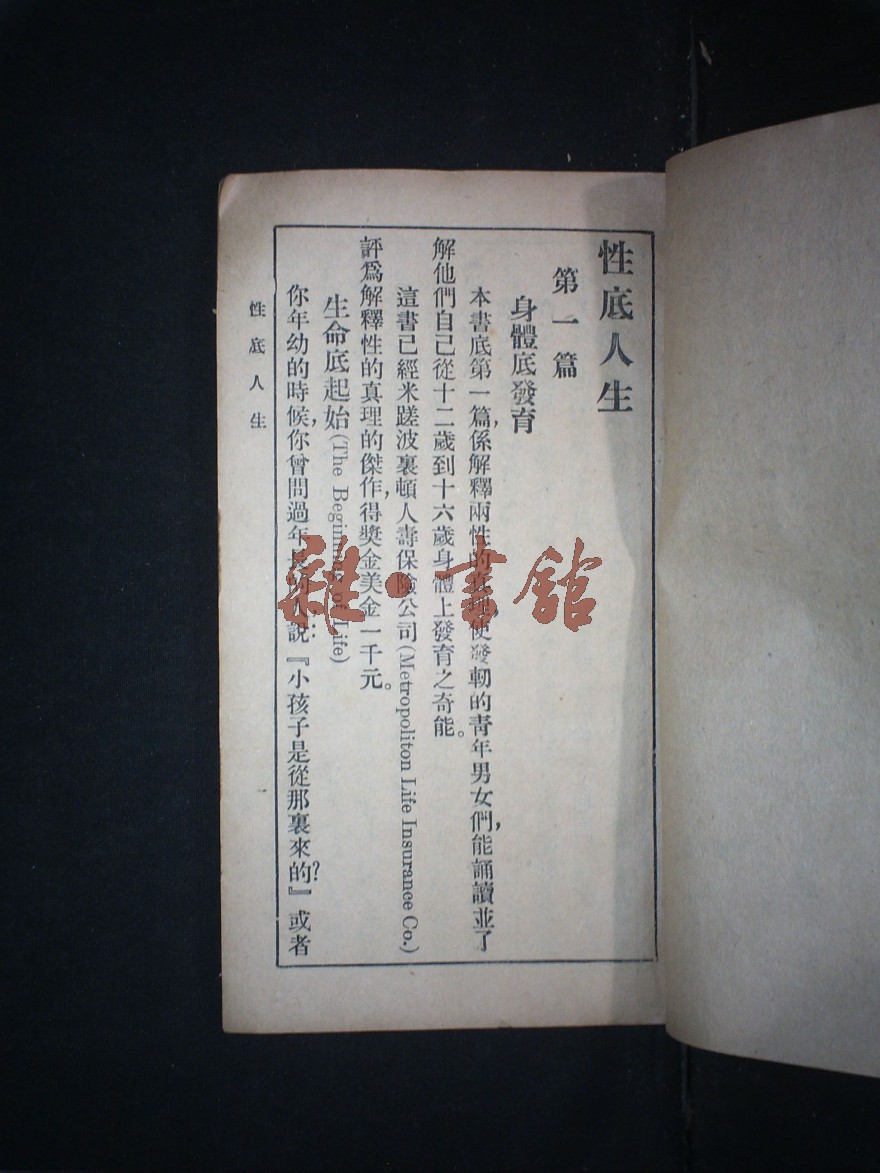 性底人生
第一篇
身體底發育
本書底第一篇,係解釋兩性的真理,使發軔的靑年男女們,能誦讀並了
解他們自己從十二歲到十六歲身體上發育之奇能。
這書已經米蹉波裏頓人壽保險公司(Metropoliton Life Insurance Co.)
評爲解釋性的真理的傑作,得獎金美金一千元。
生命底起始(The Beginning of Life)
你年幼的時候,你曾問過年長的人說:『小孩子是從那裏來的?』或者
性底人生
雜·書館